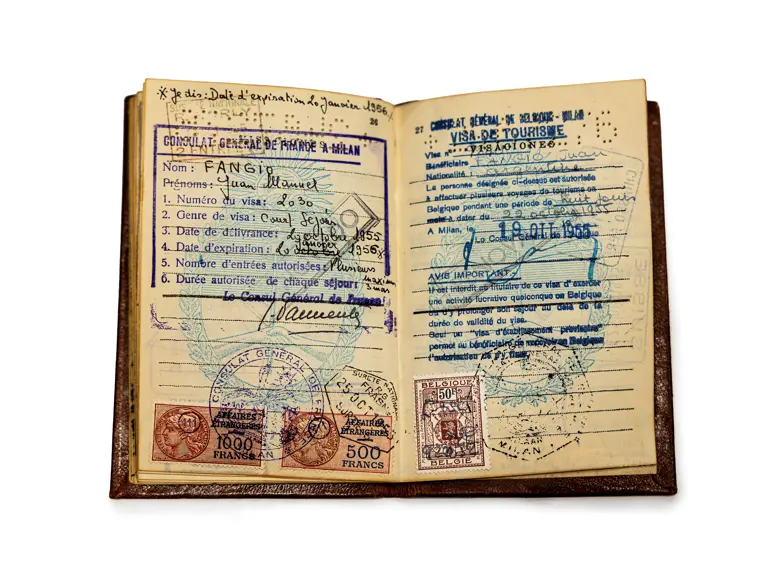 ※ Je dis: Date d'expiration 20 Janvier 1956
26
ORLY
CONSULAT GÉNÉRAL DE FRANCE A MILAN
Nom : FANGIO
Prénoms : Juan Manuel
1. Numéro du visa: 2030
2. Genre de visa: Court Séjour
3. Date de délivrance: octobre 1955
janvier
4. Date d'expiration: 20 octobre 1956
5. Nombre d'entrées autorisées: Plusieurs
6. Durée autorisée de chaque séjour: maximum
3 mois
Le Consul Général de France
CONSULAT GÉNÉRAL DE
MILAN
SURETÉ NATIONALE
25 OCT
AFFAIRES
ÉTRANGÈRES
1000
FRANCS
AFFAIRES
ÉTRANGÈRES
500
FRANCS
27
CONSULAT GÉNÉRAL DE BELGIQUE - MILAN
VISA DE TOURISME
VISACIONES
Visa n°
Bénéficiaire FANGIO Juan
Nationalité : argentine
La personne désignée ci-dessus est autorisée
à effectuer plusieurs voyages de tourisme en
Belgique pendant une période de huit jours
à dater du 22 octobre 1955
A Milan, le 18 OTT. 1955
Le Consul Général
AVIS IMPORTANT.
Il est interdit au titulaire de ce visa d'exercer
une activité lucrative quelconque en Belgique
ou d'y prolonger son séjour au delà de la
durée de validité du visa.
Seul un "visa d'établissement provisoire"
permet au bénéficiaire de
l'autorisation de s'y fixer.
BELGIQUE
50 fr
BELGIE
MILAN